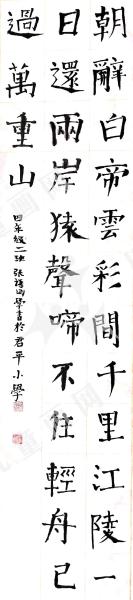 朝辭白帝雲彩間千里江陵一
日還兩岸猿聲啼不住輕舟已
過萬重山
四年級二班 張學書於君平小學